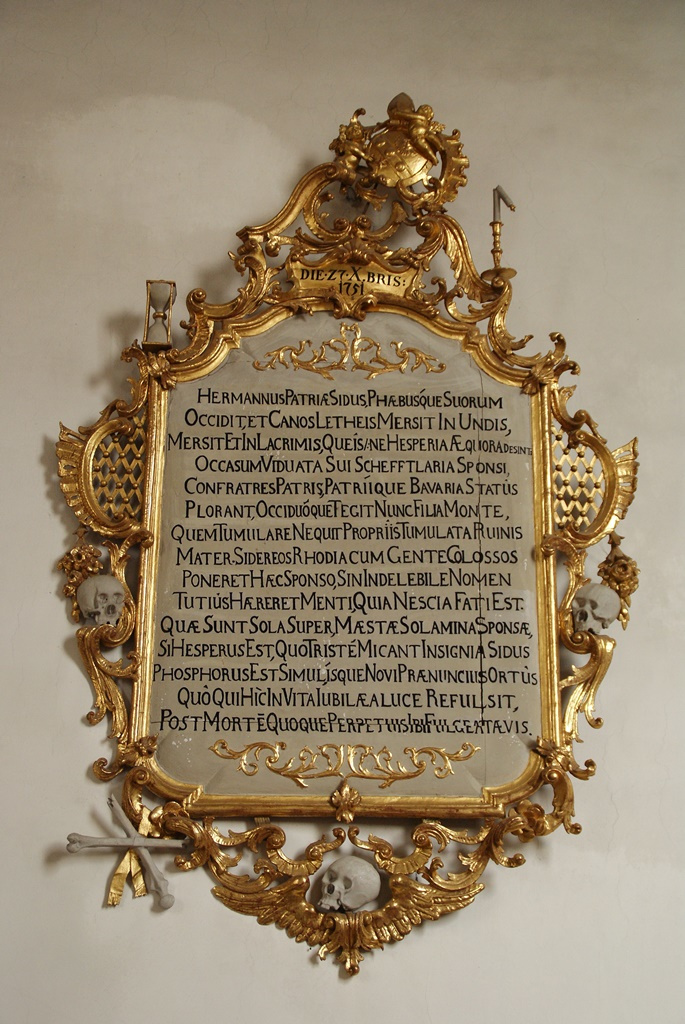 DIE·27·X·BRIS:
1751
HERMANNUS PATRIÆ SIDUS, PHÆBUSQUE SUORUM
OCCIDIT, ET CANOS LETHEIS MERSIT IN UNDIS,
MERSIT ET IN LACRIMIS, QUEIS HESPERIA ÆQUORA
OCCASUM VIDUATA SUI SCHEFFTLARIA SPONSI,
CONFRATRES PATRIS, PATRIÍQUE BAVARIA STATÙS
PLORANT, OCCIDUÓQUE TEGIT NUNC FILIA MONTE,
QUEM TUMULARE NEQUIT PROPRIIS TUMULATA RUINIS
MATER. SIDEREOS RHODIA CUM GENTE COLOSSOS
PONERET HÆC SPONSO, SIN INDELEBILE NOMEN
TUTIÙS HÆRERET MENTI, QUIA NESCIA FATI EST.
QUÆ SUNT SOLA SUPER, MÆSTÆ SOLAMINA SPONSÆ,
SI HESPERUS EST, QUO TRISTÉ MICANT INSIGNIA SIDUS
PHOSPHORUS EST SIMUL, ISQUE NOVI PRÆNUNCIUS ORTÙS
QUÔ QUI HÌC IN VITA IUBILÆA LUCE REFULSIT,
POST MORTĒ QUOQUE PERPETUIS IBI FULGEAT ÆVIS.